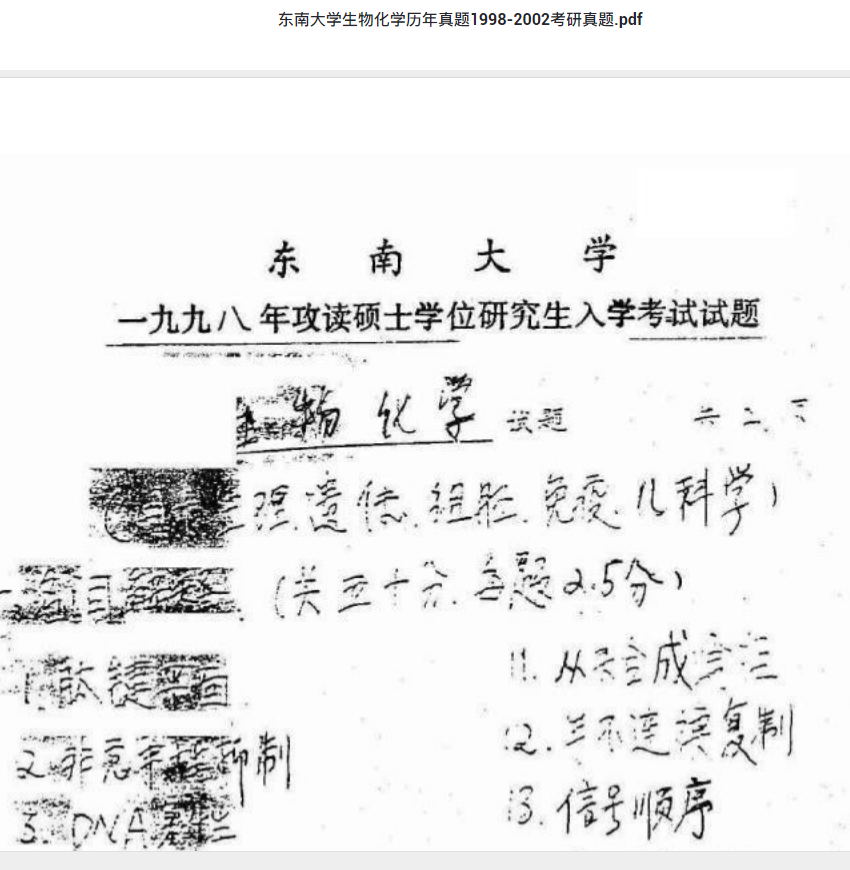 东南大学生物化学历年真题1998-2002考研真题.pdf
东 南 大 学
一九九八年攻读硕士学位研究生入学考试试题
物化学 试题 共 二
理、遗传、组胚、免疫、儿科学)
(共五十分、每题2.5分)
1. 肽键平面
2. 非竞争性抑制
3. DNA
11. 从头合成途径
12. 半不连续复制
13. 信号顺序